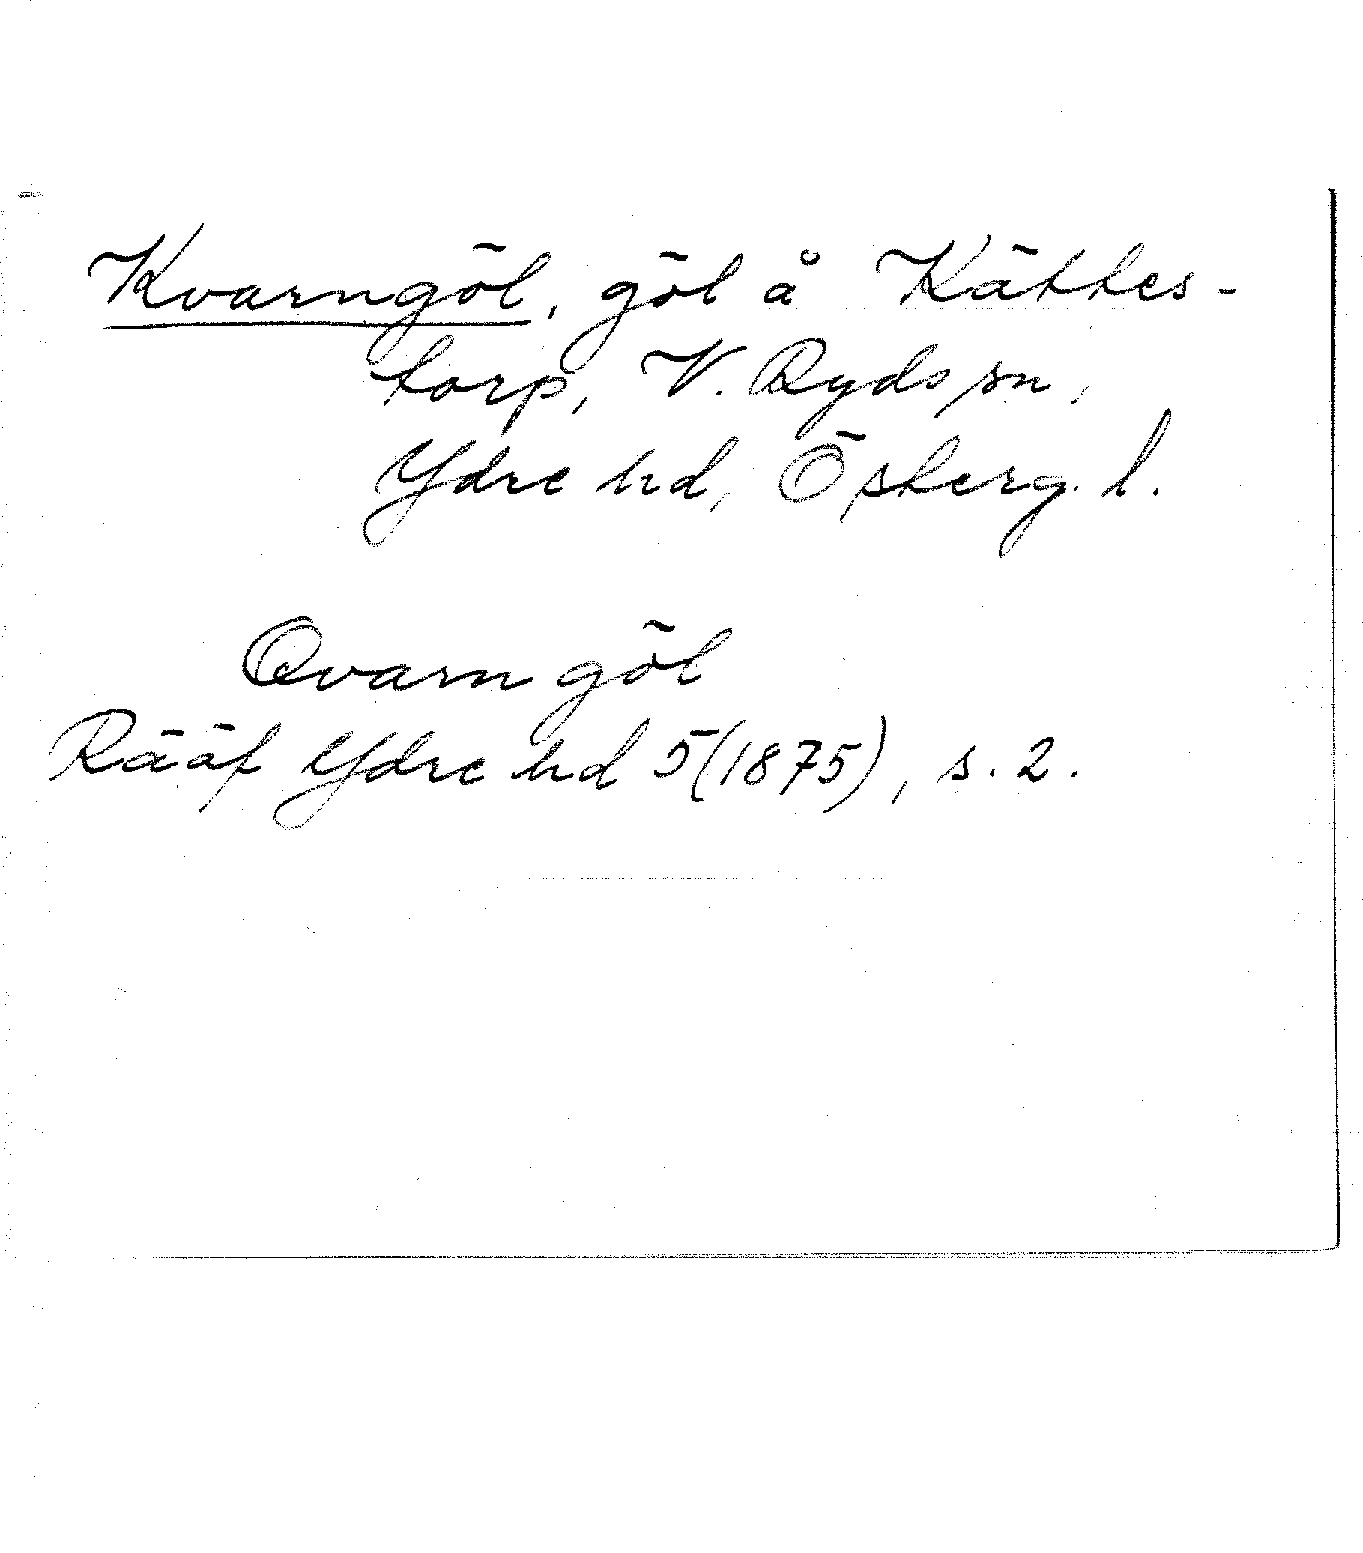 Kvarngöl, göl å Kättes-
torp, V. Ryds sn,
Ydre hd, Österg. l.
Qvarngöl
Rääf Ydre hd 5(1875), s. 2.